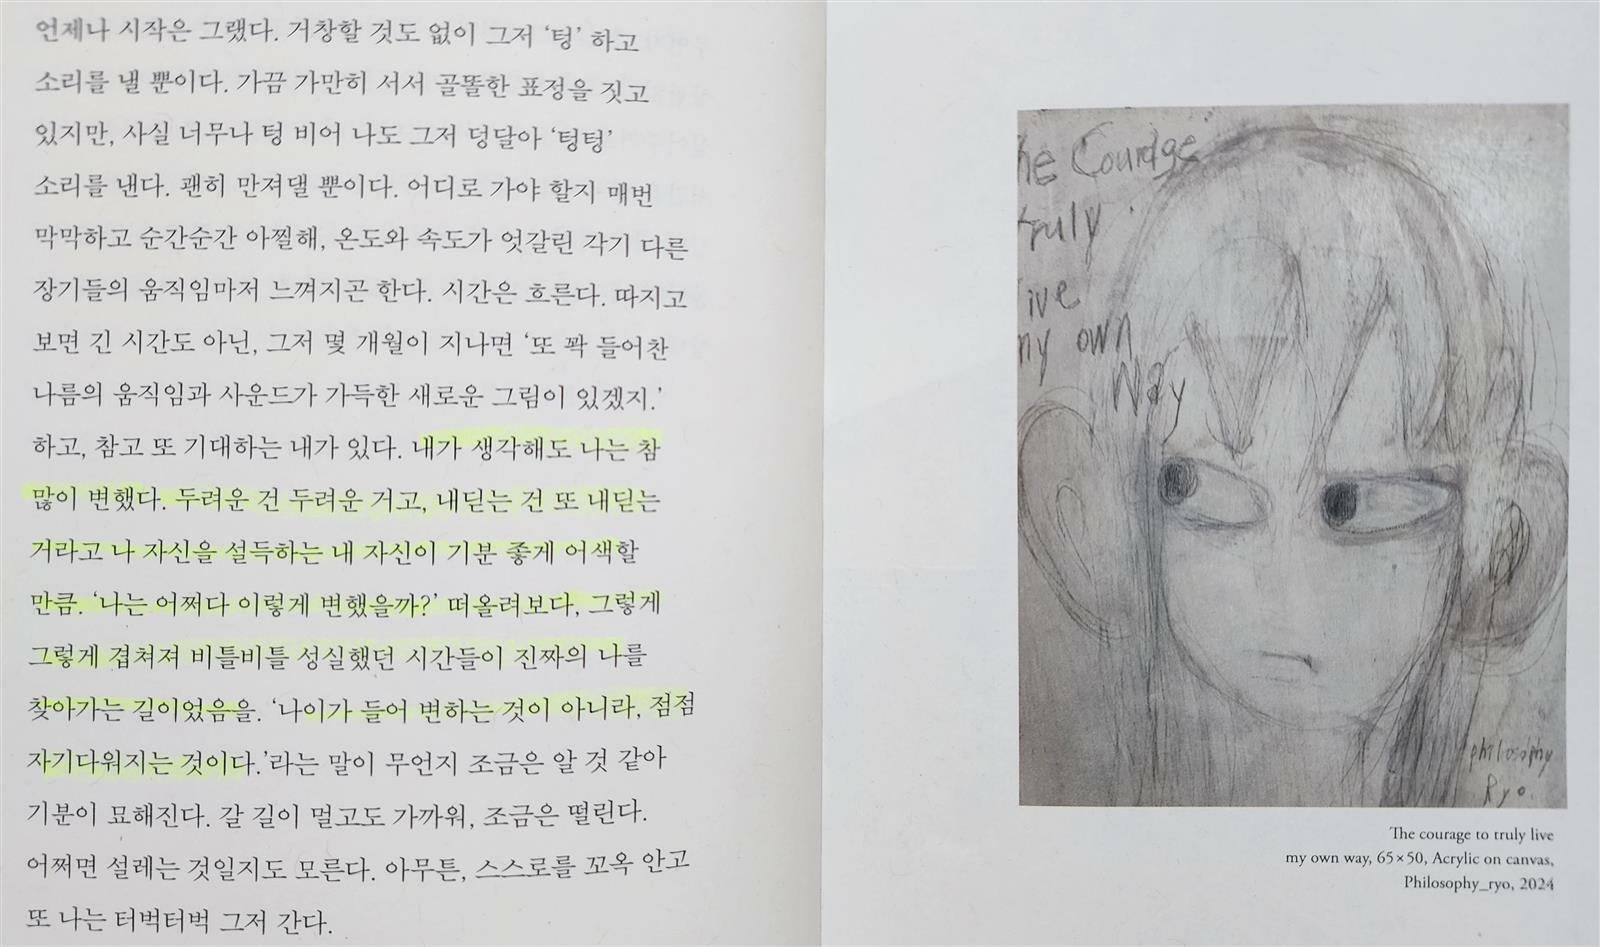 언제나 시작은 그랬다. 거창할 것도 없이 그저 ‘텅’ 하고
소리를 낼 뿐이다. 가끔 가만히 서서 골똘한 표정을 짓고
있지만, 사실 너무나 텅 비어 나도 그저 덩달아 ‘텅텅’
소리를 낸다. 괜히 만져댈 뿐이다. 어디로 가야 할지 매번
막막하고 순간순간 아찔해, 온도와 속도가 엇갈린 각기 다른
장기들의 움직임마저 느껴지곤 한다. 시간은 흐른다. 따지고
보면 긴 시간도 아닌, 그저 몇 개월이 지나면 ‘또 꽉 들어찬
나름의 움직임과 사운드가 가득한 새로운 그림이 있겠지.’
하고, 참고 또 기대하는 내가 있다. 내가 생각해도 나는 참
많이 변했다. 두려운 건 두려운 거고, 내딛는 건 또 내딛는
거라고 나 자신을 설득하는 내 자신이 기분 좋게 어색할
만큼. ‘나는 어쩌다 이렇게 변했을까?’ 떠올려보다, 그렇게
그렇게 겹쳐져 비틀비틀 성실했던 시간들이 진짜의 나를
찾아가는 길이었음을. ‘나이가 들어 변하는 것이 아니라, 점점
자기다워지는 것이다.’라는 말이 무언지 조금은 알 것 같아
기분이 묘해진다. 갈 길이 멀고도 가까워, 조금은 떨린다.
어쩌면 설레는 것일지도 모른다. 아무튼, 스스로를 꼬옥 안고
또 나는 터벅터벅 그저 간다.
he Courage
truly
ive
my own
Way
philosophy
Ryo.
The courage to truly live
my own way, 65×50, Acrylic on canvas,
Philosophy_ryo, 2024